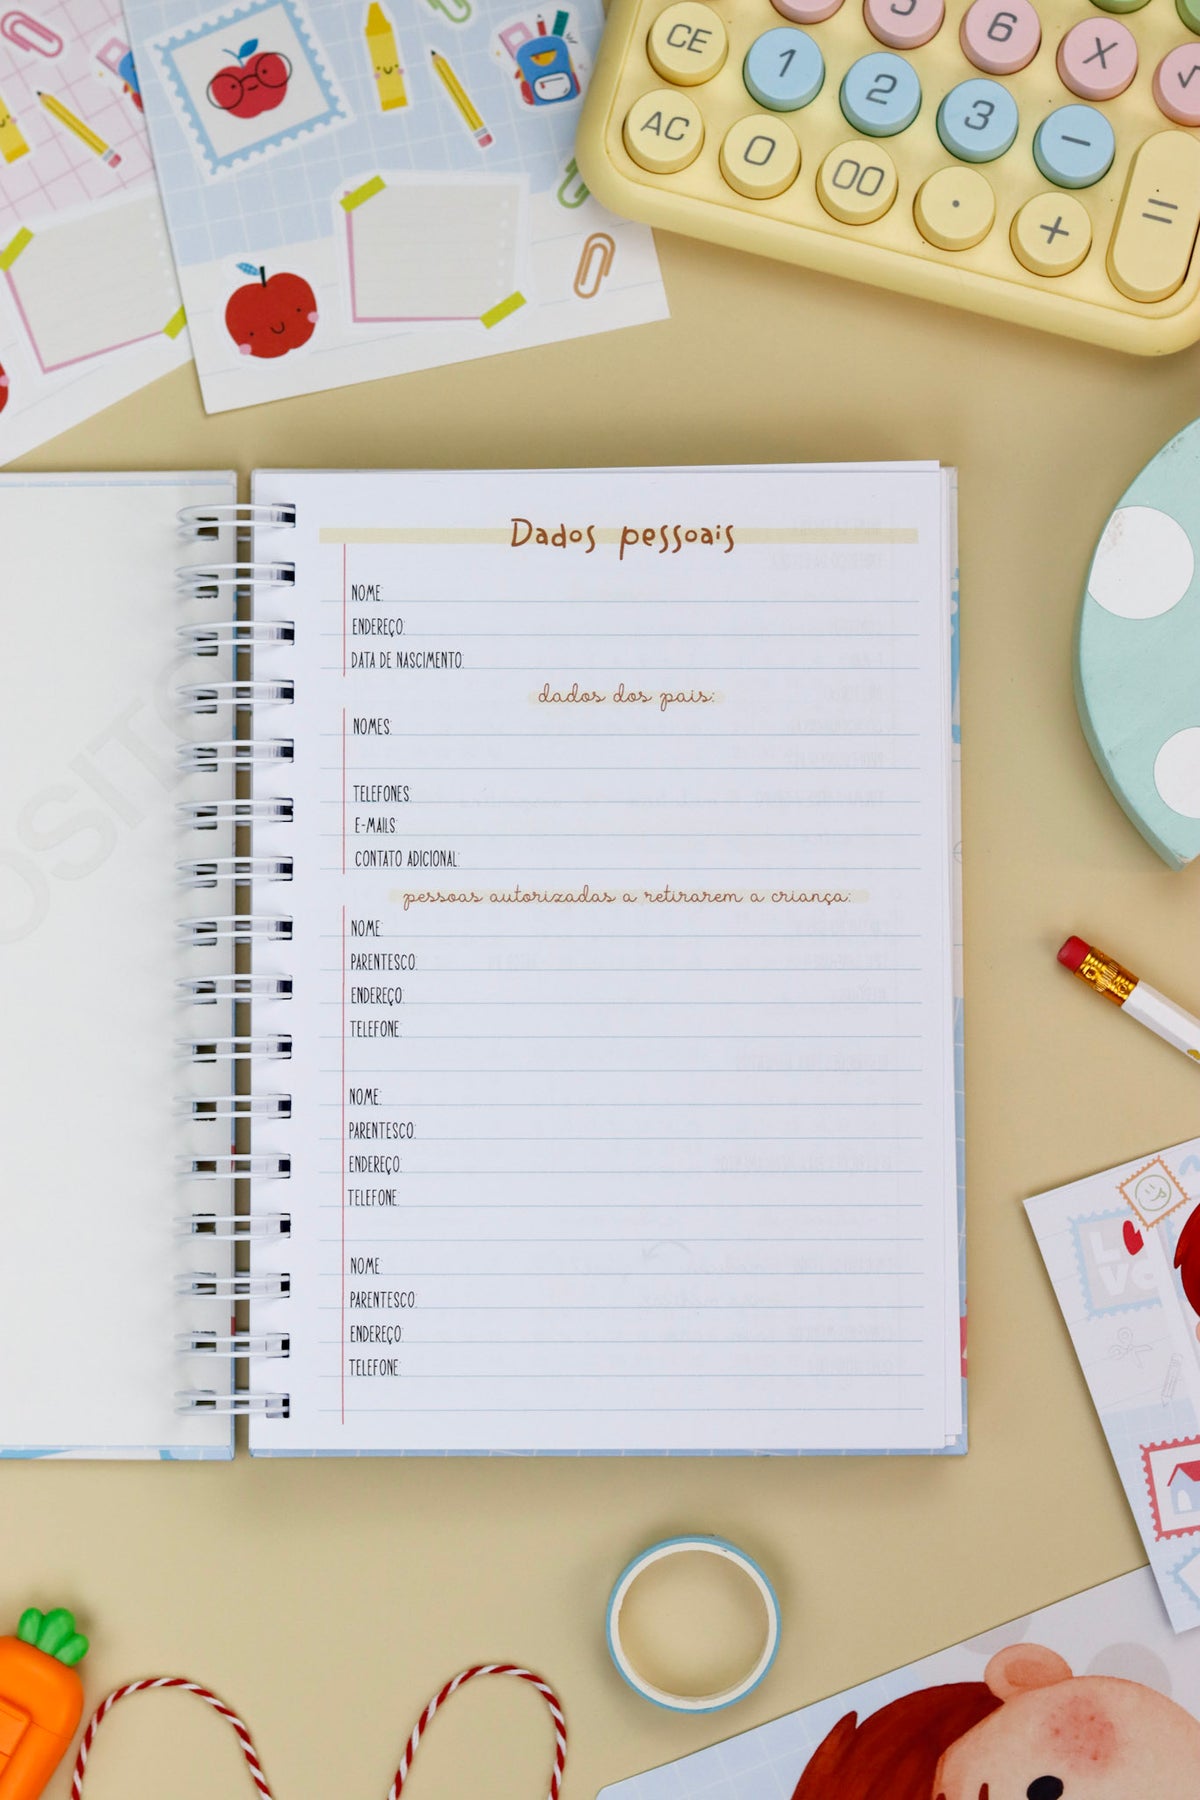 5
6
X
√
CE
1
2
3
−
AC
0
00
.
+
=
Dados pessoais
NOME:
ENDEREÇO:
DATA DE NASCIMENTO:
dados dos pais:
NOMES:
TELEFONES:
E-MAILS:
CONTATO ADICIONAL:
pessoas autorizadas a retirarem a criança:
NOME:
PARENTESCO:
ENDEREÇO:
TELEFONE:
NOME:
PARENTESCO:
ENDEREÇO:
TELEFONE:
NOME:
PARENTESCO:
ENDEREÇO:
TELEFONE: